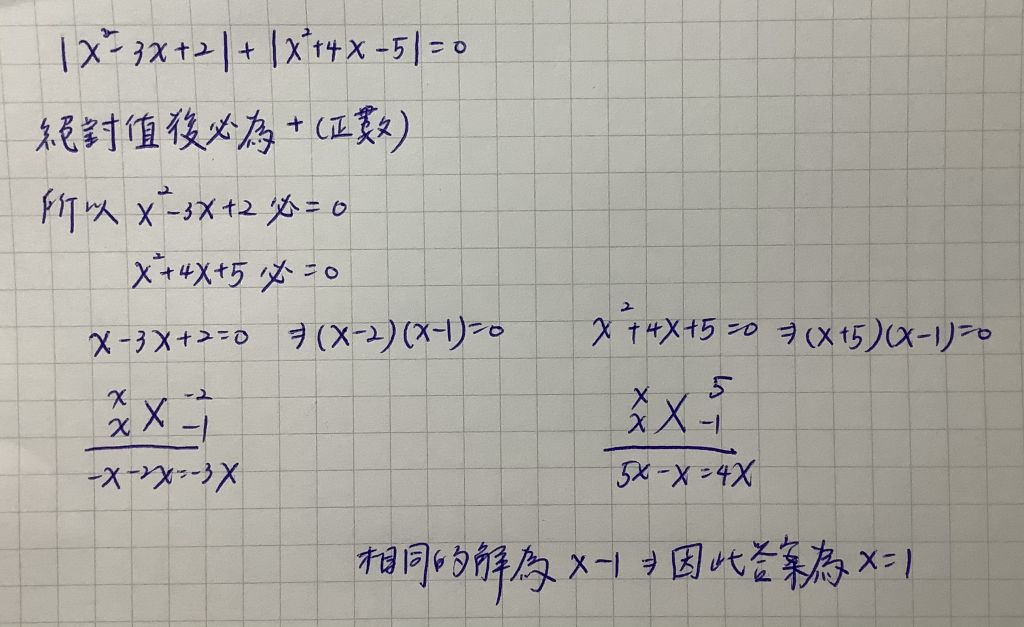 |x²-3x+2|+|x²+4x-5|=0
絕對值後必為+(正數)
所以 x²-3x+2 必=0
x²+4x+5 必=0
x-3x+2=0 ⇒(x-2)(x-1)=0
x -2
x X -1
-x-2x=-3x
x²+4x+5=0 ⇒(x+5)(x-1)=0
x 5
x X -1
5x-x=4x
相同的解為 x-1 ⇒因此答案為 x=1